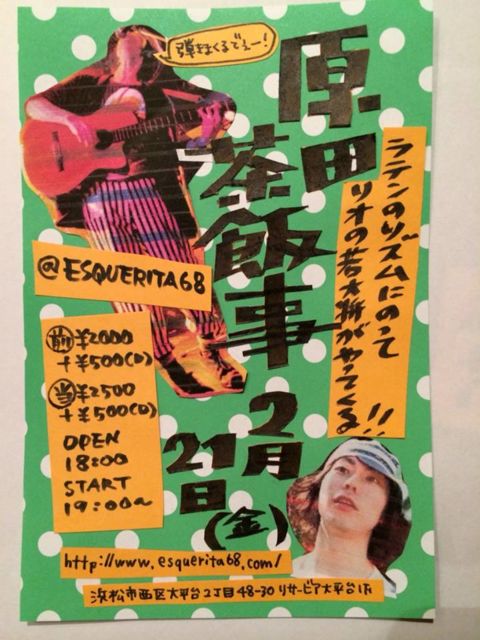 弾きまくるでぇー!
原田
茶飯事
ラテンのリズムにのって
リオの若大将がやってくる!!
@ESQUERITA68
前¥2000
+¥500(D)
当¥2500
+¥500(D)
OPEN
18:00
START
19:00~
2月
21日
(金)
http://www.esquerita68.com/
浜松市西区大平台2丁目48-30 リサービア大平台1F